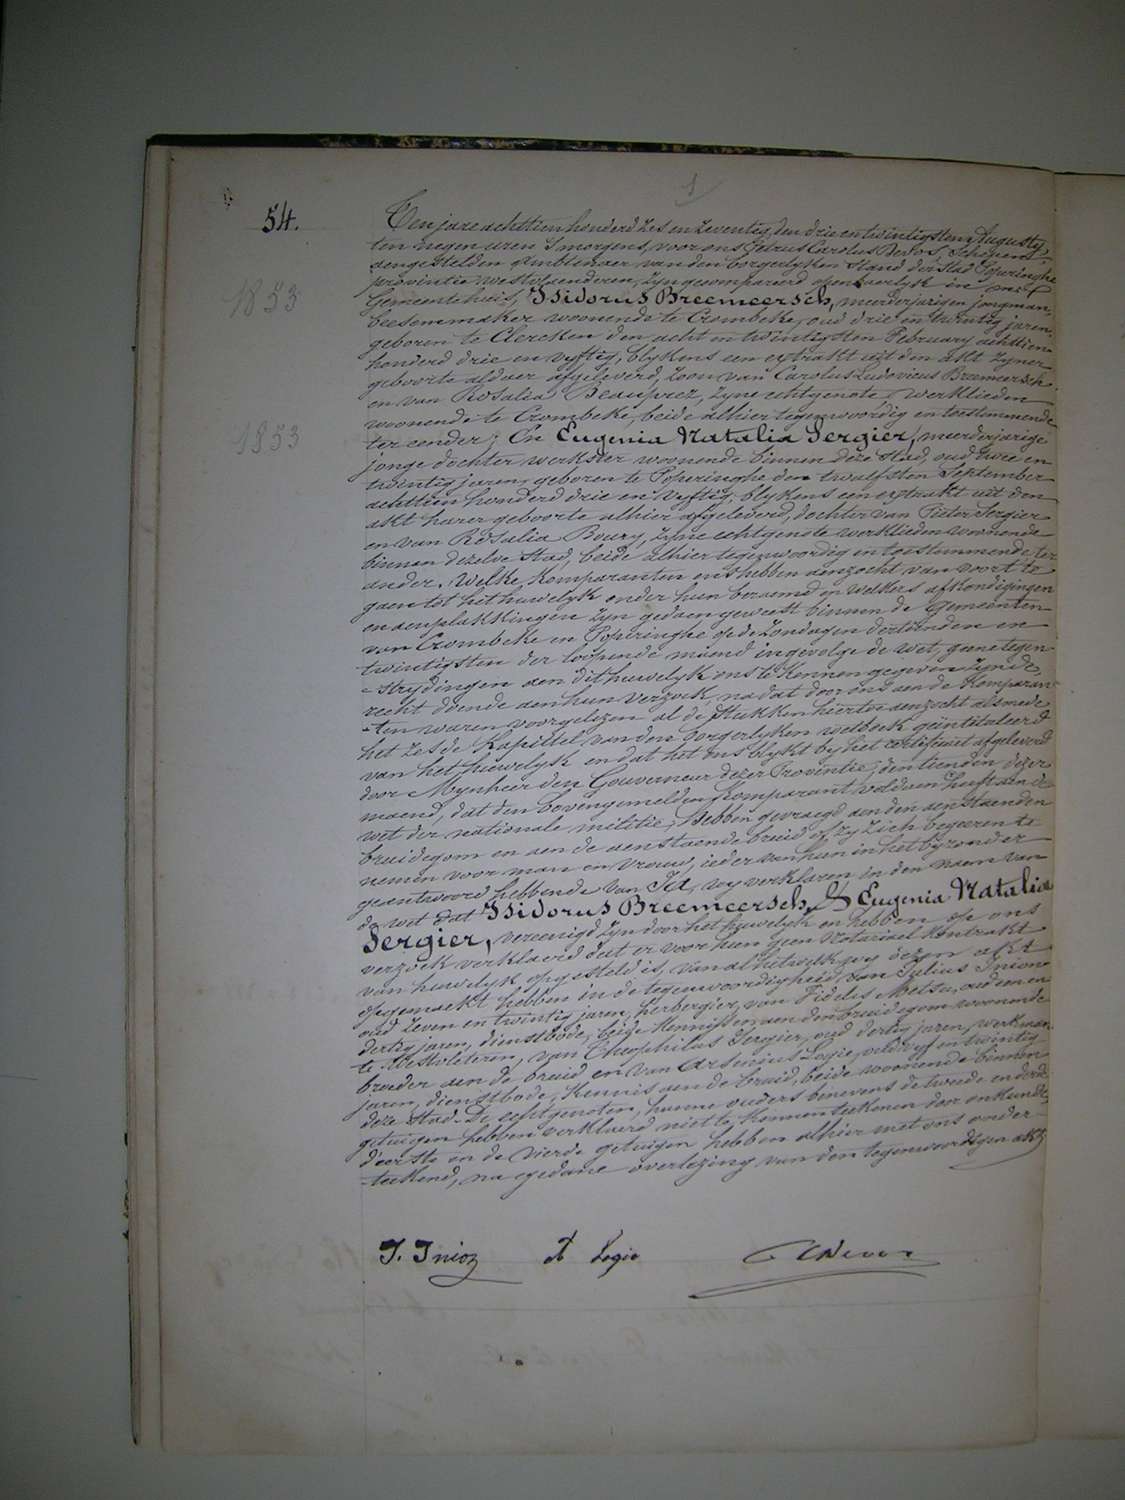 1
54.
Ten jare achttien honderd zes en zeventig, den drie en twintigsten Augusty
ten negen uren 's morgens, voor ons Petrus Carolus Devos, Schepene
aengestelden Amblenaer van den borgerlyken stand der Stad Poperinghe
provintie Westvlaenderen, zyn gecompareerd openbaerlyk in ons
Gemeentehuis, Isidorus Breemeersch, meerderjarigen jongman,
beesemmaker woonende te Crombeke, oud drie en twintig jaren,
geboren te Clercken den acht en twintigsten February achttien
honderd drie en vyftig, blykens een extrakt uit den akt zyner
geboorte aldaer afgeleverd, zoon van Carolus Ludovicus Breemeersch
en van Rosalia Beauprez, zyne echtgenote, werklieden
woonende te Crombeke, beide alhier tegenwoordig en toestemmende
ter eender; En Eugenia Natalia Sergier, meerderjarige
jonge dochter werkster woonende binnen deze Stad, oud twee en
twintig jaren, geboren te Poperinghe den twaelfsten September
achttien honderd drie en vyftig, blykens een extrakt uit den
akt harer geboorte alhier afgeleverd, dochter van Pieter Sergier
en van Rosalia Boury, zyne echtgenote werklieden woonende
binnen dezelve Stad, beide alhier tegenwoordig en toestemmende ter
ander. Welke komparanten ons hebben aenzocht van voort te
gaen tot het huwelyk onder hun beraemd en welkers afkondigingen
en aenplakkingen zyn gedaen geweest binnen de Gemeenten
van Crombeke en Poperinghe op de Zondagen dertienden en
twintigsten der loopende maend ingevolge de wet, geene tegen
strydingen aen dit huwelyk ons te kennen gegeven zynde,
recht doende aen hun verzoek, na dat door ons aen de komparan
ten waren voorgelezen al de stukken hiertoe aenzocht alsmede
het zesde kapittel van den borgerlyken wetboek geïntituleerd
van het huwelyk en dat het ons blykt by het certificaet afgeleverd
door Mynheer den Gouverneur dezer Provintie, den tienden dezer
maend, dat den bovengemelden komparant voldaen heeft aen de
wet der nationale militie, hebben gevraegd aen den aenstaenden
bruidegom en aen de aenstaende bruid of zy zich begeeren te
nemen voor man en vrouw, ieder van hun in het byzonder
geantwoord hebbende van Ja, wy verklaren in den naem van
de wet dat Isidorus Breemeersch, & Eugenia Natalia
Sergier, vereenigd zyn door het huwelyk en hebben op ons
verzoek verklaerd dat er voor hun geen Notariael kontrakt
van huwelyk opgesteld is, van al hetwelk wy dezen akt
opgemaekt hebben in de tegenwoordigheid van Julius Inion
oud zeven en twintig jaren, herbergier, van Fidelis Metsu, oud een en
dertig jaren, dienstbode, beide kennissen aen den bruidegom woonende
te Westvleteren, van Theophilus Sergier, oud dertig jaren, werkman
broeder aen de bruid en van Arsenius Logie, oud vyf en twintig
jaren, dienstbode, kennis aen de bruid, beide woonende binnen
deze Stad. De echtgenoten, hunne ouders benevens de tweede en derde
getuigen hebben verklaerd niet te kunnen teekenen door onkunde,
d'eerste en de vierde getuigen hebben alhier met ons onder
teekend, na gedane overlezing van den tegenwoordigen akt
1853
1853
J. Inion A Logie C Devos